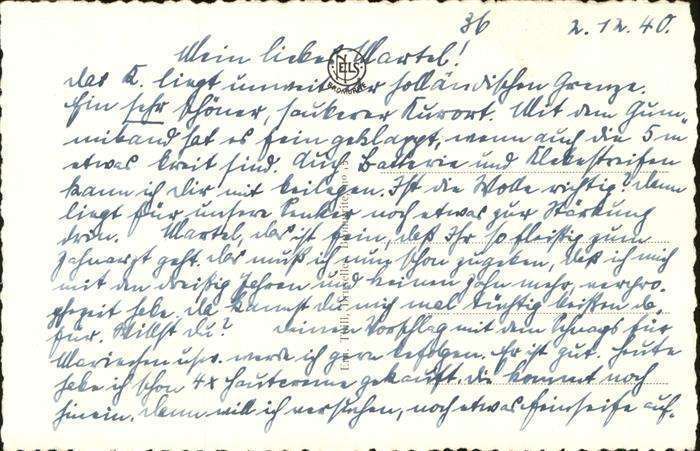 36 2.12.40.
Mein lieber Martel!
Das K. liegt unweit der holländischen Grenze.
Ein sehr schöner, sauberer Kurort. Mit dem Gum-
miband hat es fein geklappt, wenn auch die 5 m
etwas breit sind. Auch Batterie und Klebestreifen
kann ich Dir mit beilegen. Ist die Wolle richtig? Dann
liegt für unsere noch etwas zur Stärkung
drin. Martel, das ist fein, daß Ihr so fleißig zum
Zahnarzt geht. Das muß ich nun schon zugeben, daß ich mich
mit den dreißig Jahren und keinen Zahn mehr, verpro-
phezeit habe. Da kannst Du mich mal tüchtig beißen da-
für. Willst Du? Deinen Vorschlag mit dem Schnaps für
Mariechen usw. werde ich gern befolgen. Er ist gut. Heute
habe ich schon 4x Hautcreme gekauft. Die kommt noch
hinein. Dann will ich versuchen, noch etwas Feinseife auf-
NELS